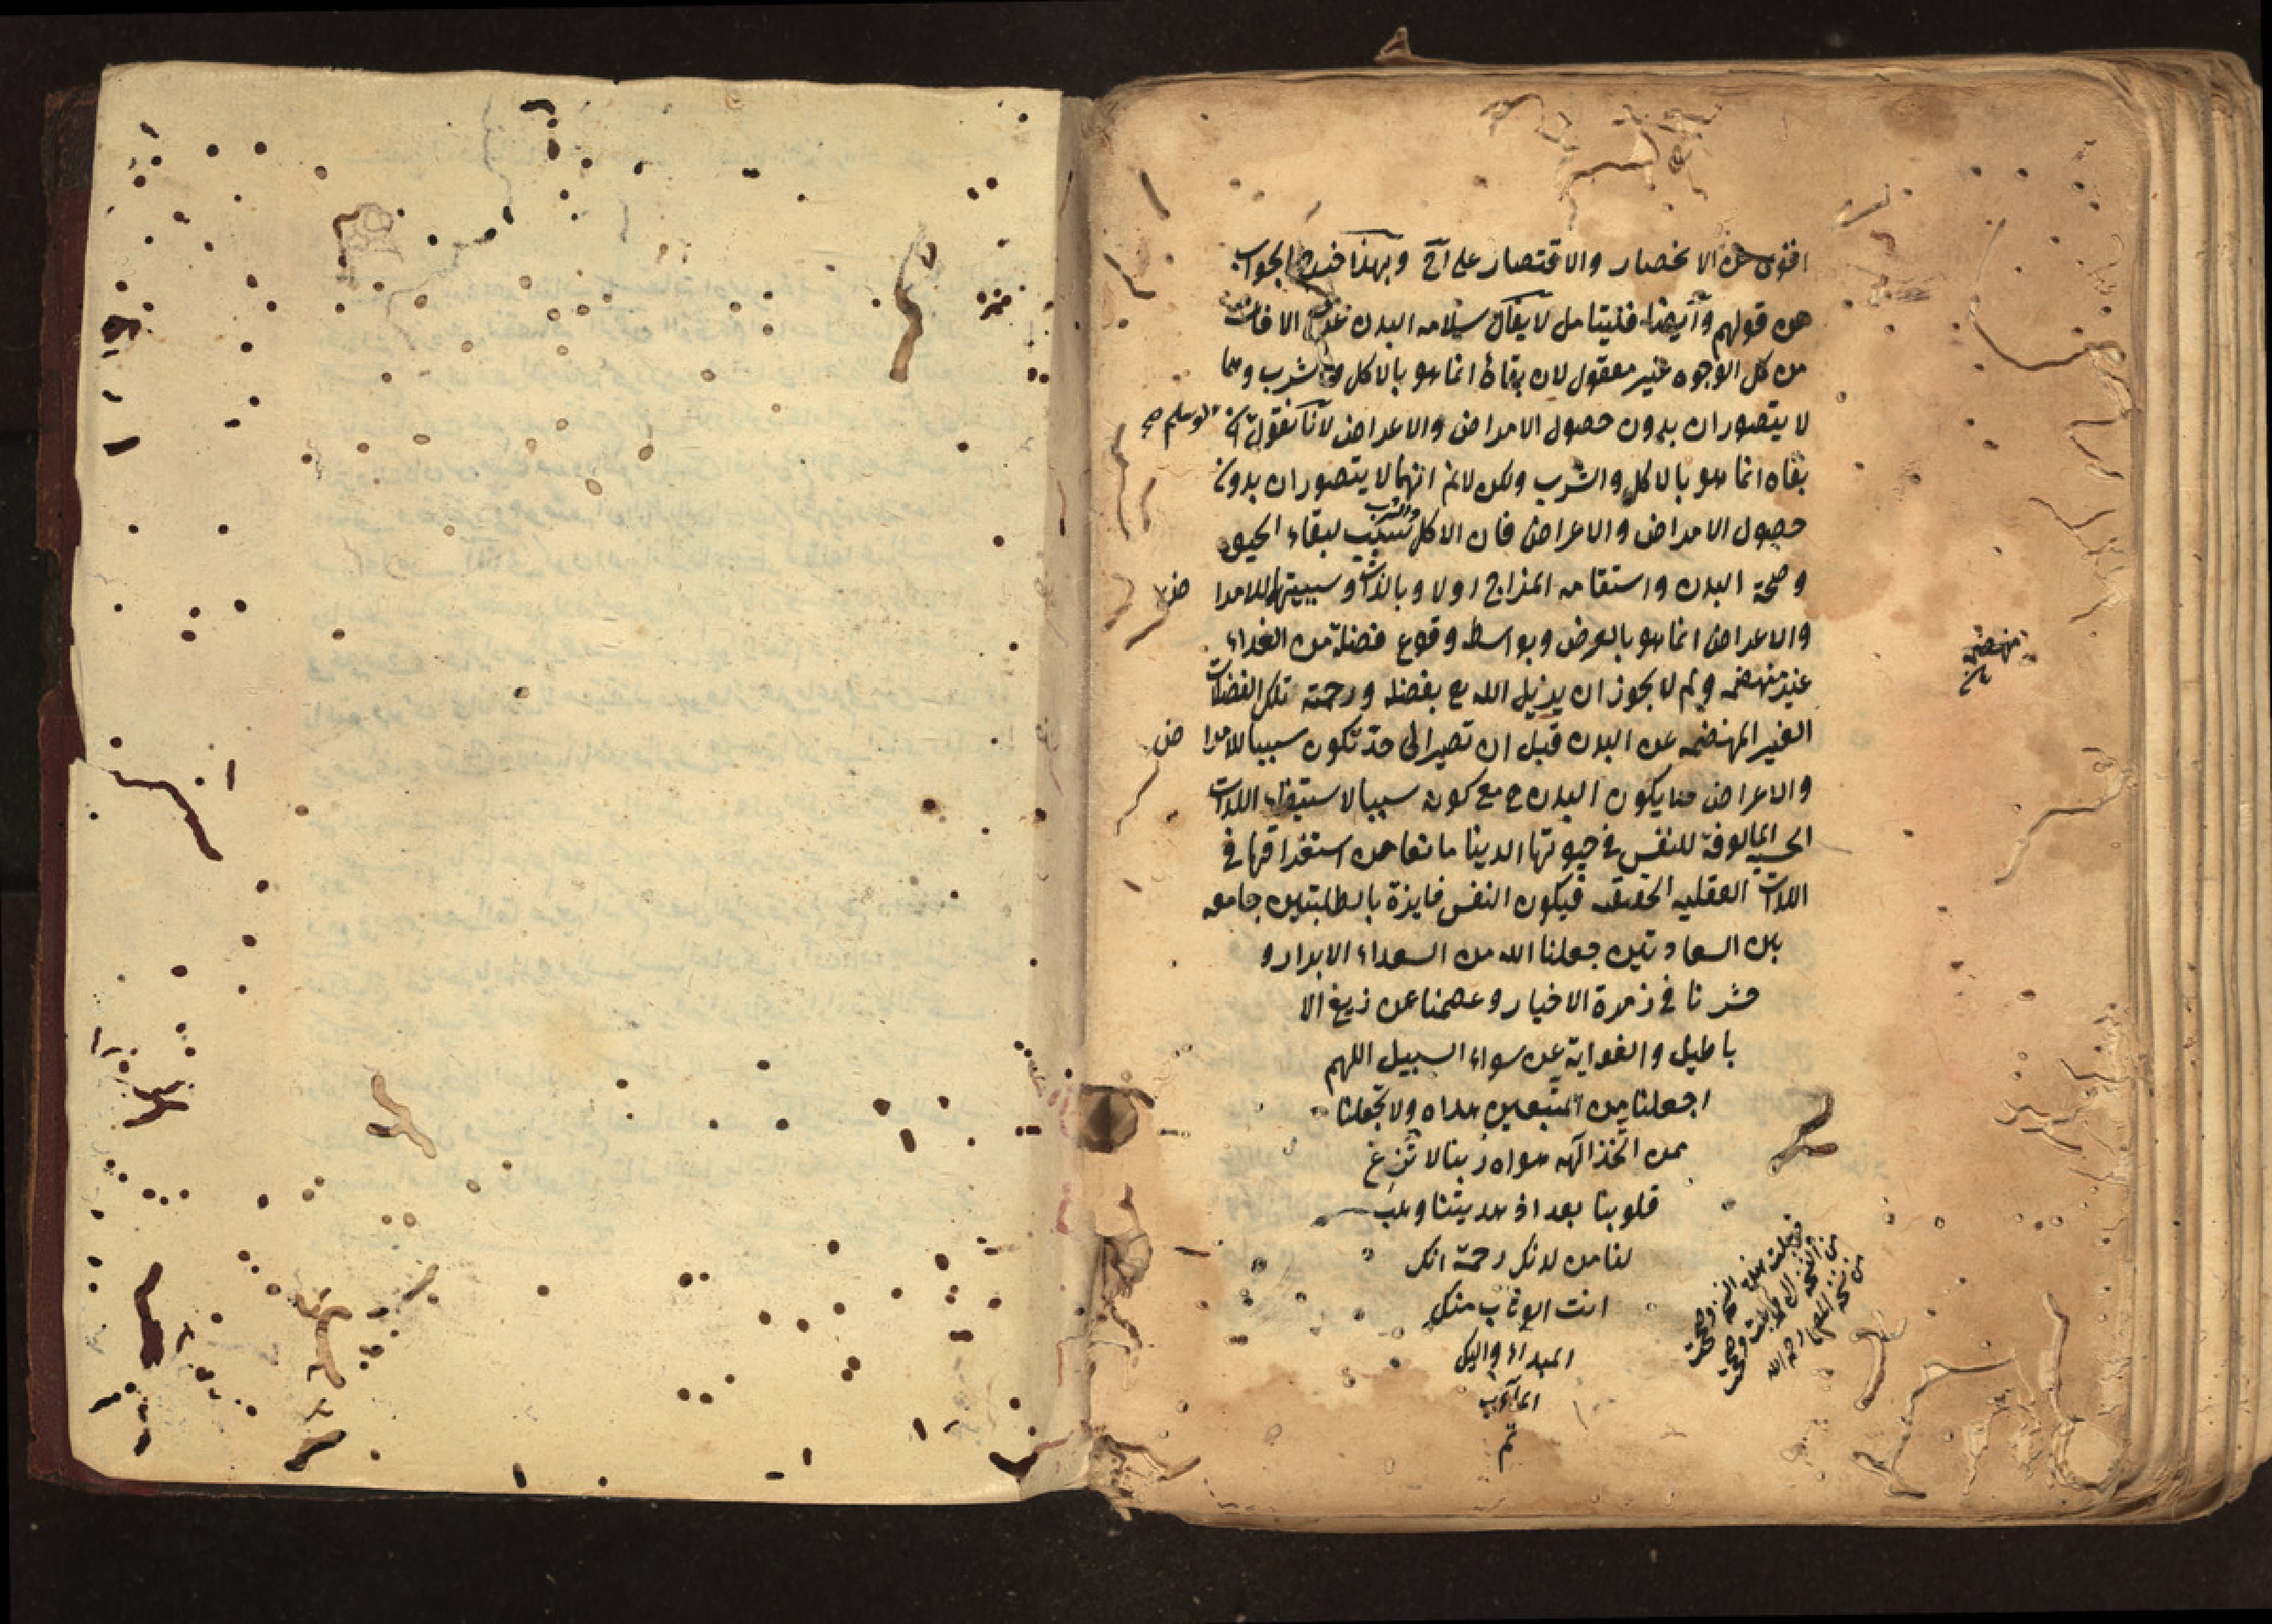 الانحصار والاقتصار على آخ وبهذا خرج الجواب
عن قولهم وآيضا فليتامل لا يقال سلامه البدن عن الافات
من كل الوجوه غير معقول لان بقاءه انما هو بالاكل والشرب وهما
لا يتصوران بدون حصول الامراض والاعراض لانا نقول
بقاه انما هو بالاكل والشرب ولكن لانم انهما لا يتصوران بدون
حصول الامراض والاعراض فان الاكل والشرب سبب لبقاء الحيوة
وصحة البدن واستقامه المزاج اولا وبالذات وسببيتهما للامراض
والاعراض انما هو بالعرض وبواسطه وقوع فضلة من الغداء
غير منهضمه ولم لا يجوز ان يزيل الله تع بفضله ورحمته تلك الفضلات
الغير المنهضمه عن البدن قبل ان تصير الى حد تكون سببا للامراض
والاعراض فلا يكون البدن ح مع كونه سببا لاستيفاء اللذات
الحسيه المالوفة للنفس في حيوتها الدينا مانعا عن استغراقها في
اللذات العقليه الحقيقيه فيكون النفس فايزة بالطلبتين جامعه
بين السعادتين جعلنا الله من السعداء الابرار و
حشرنا في زمرة الاخيار وعصمنا عن زيغ الا
باطيل والغواية عن سواء السبيل اللهم
اجعلنا من المتبعين هداه ولا تجعلنا
ممن اتخذ آلهه هواه ربنا لا تزغ
قلوبنا بعد اذ هديتنا وهب
لنا من لدنك رحمة انك
انت الوهاب منك
المبداء واليك
المآب
تم